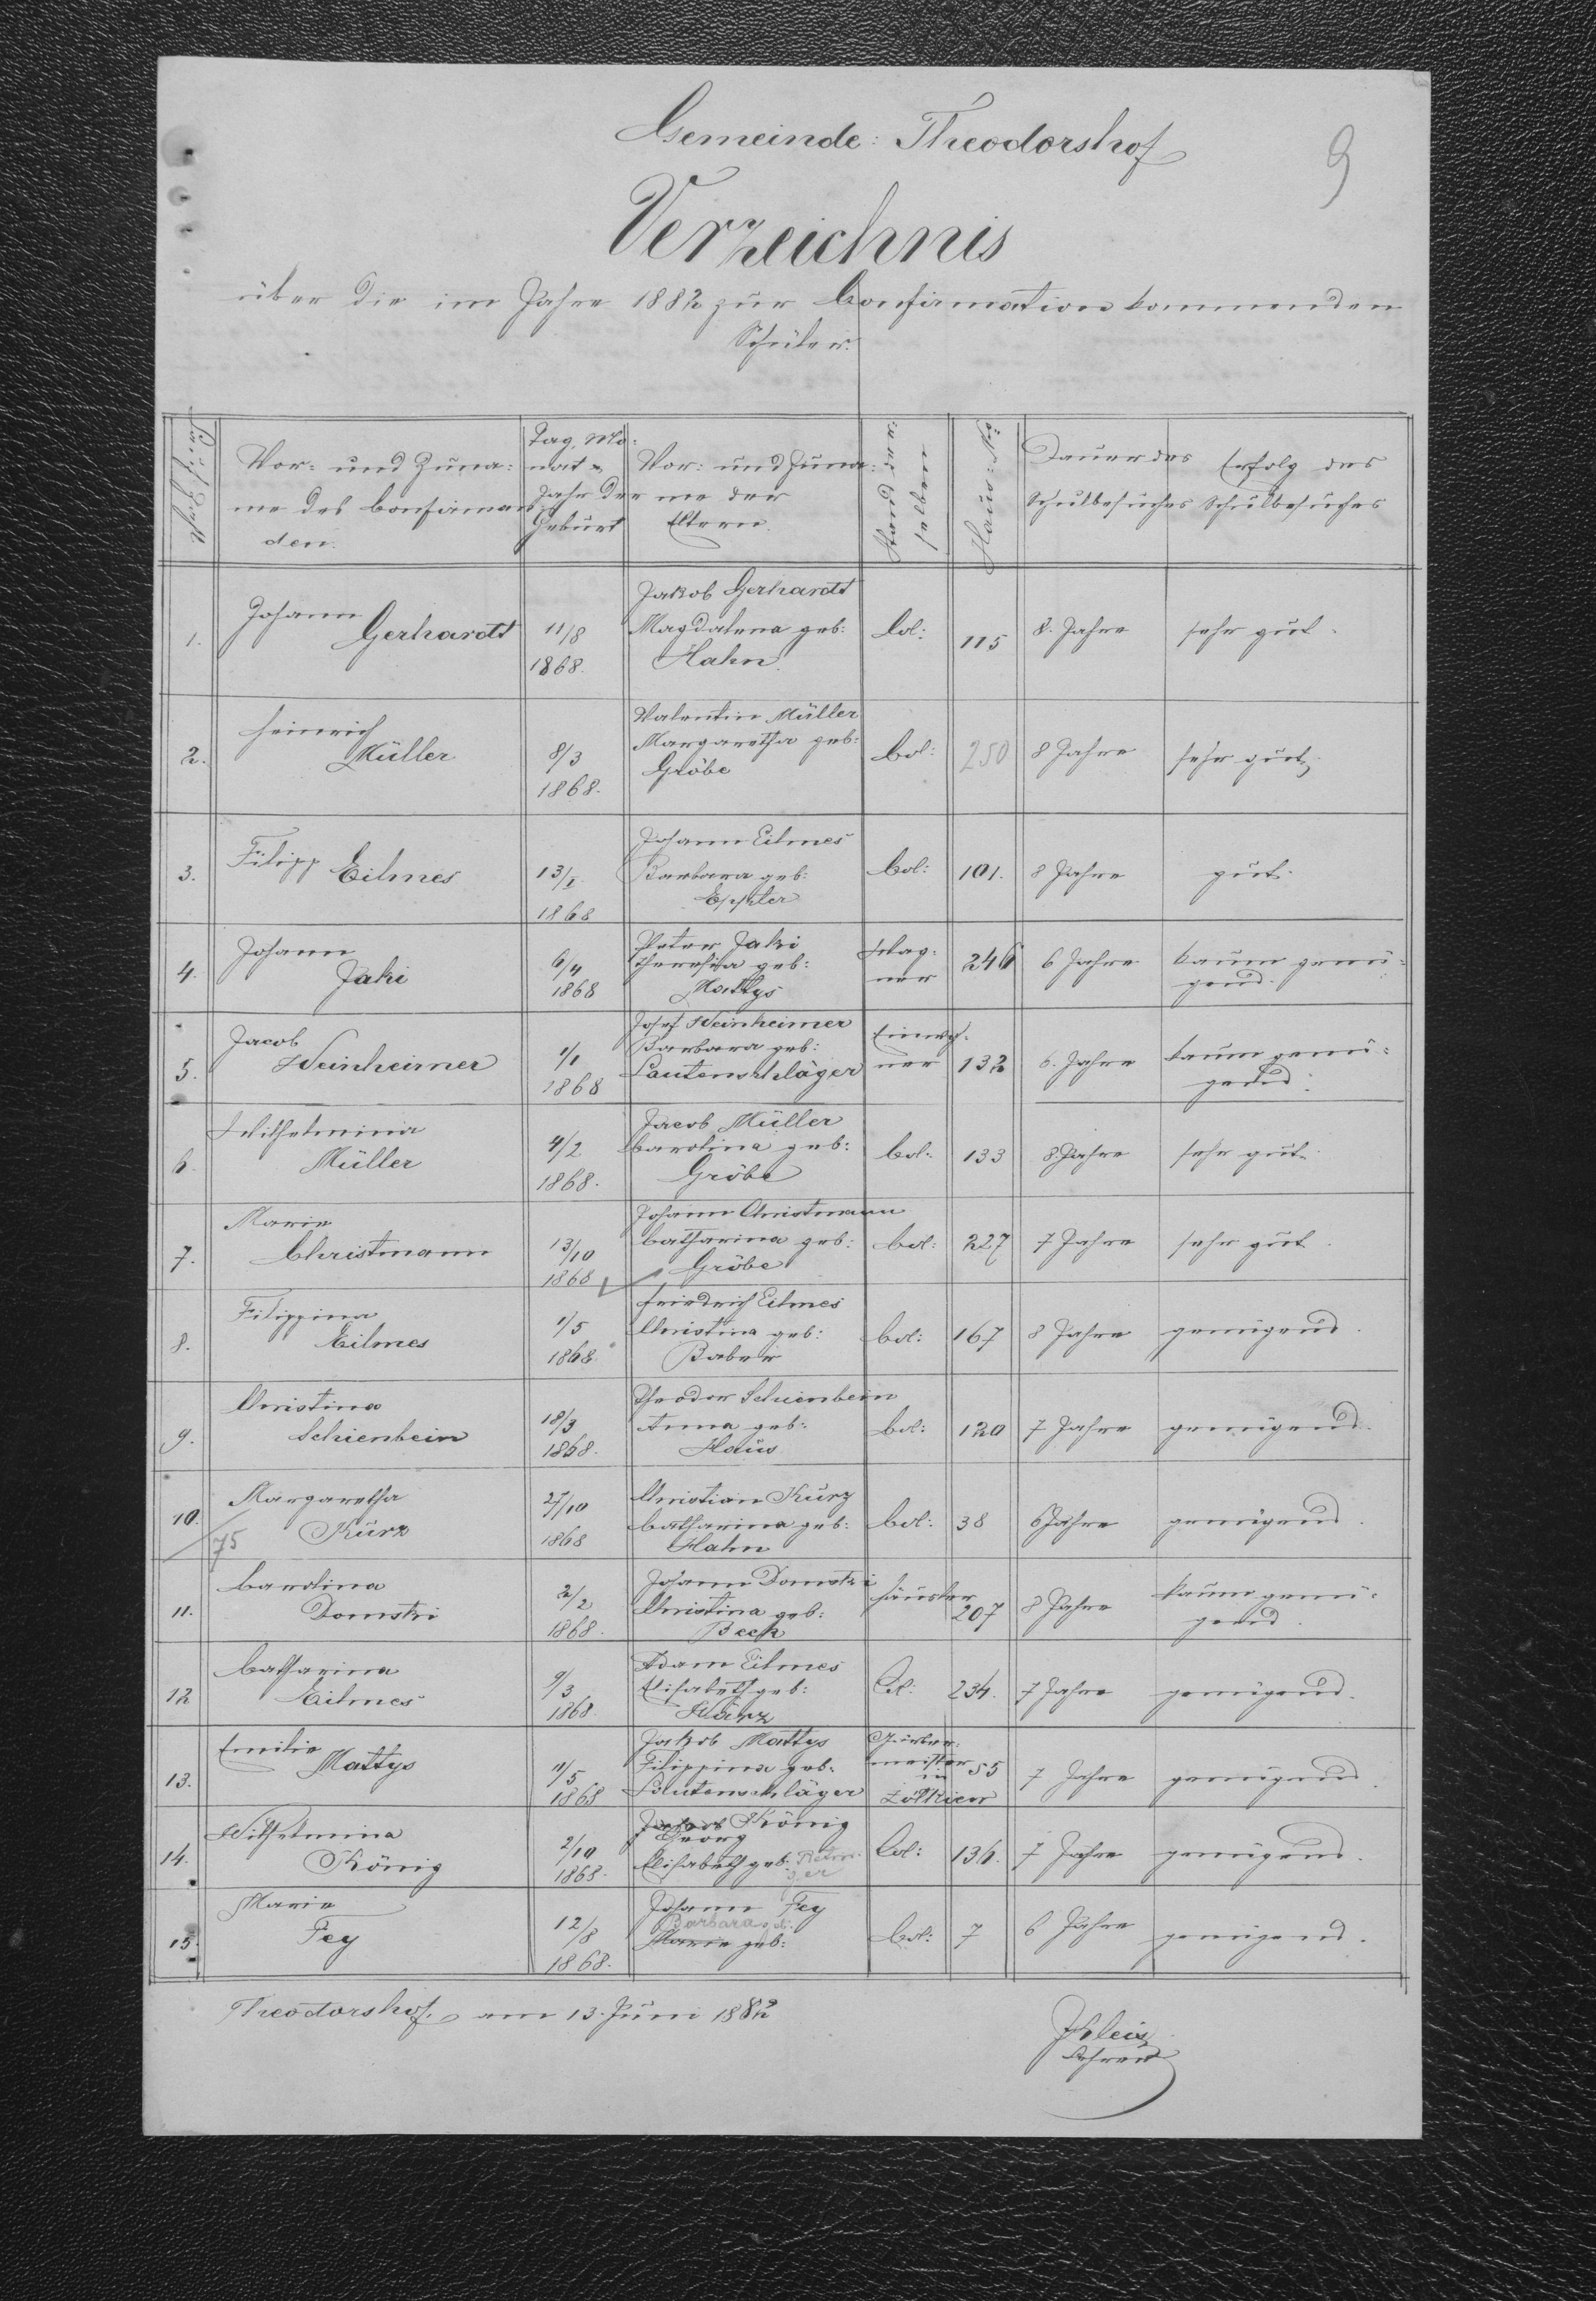 9
Gemeinde: Theodorshof
Verzeichnis
über die im Jahre 1882 zur Confirmation kommenden
Schüler.
Vor- und Zuna-
me des Confirman
den.
Tag, Mo-
nat u.
Jahr der
Geburt
Vor- und Zuna-
me der
Eltern.
Stand der-
selben
Haus-No
Dauer des
Schulbesuches
Erfolg des
Schulbesuches
1. Johann Gerhardt 11/8 1868. Jakob Gerhardt Magdalena geb: Hahn. Col: 115 8. Jahre sehr gut.
2. Heinrich Müller 8/3 1868. Valentin Müller Margaretha geb: Gröbe Col: 250 8 Jahre sehr gut.
3. Filipp Eilmes 13/I. 1868 Johann Eilmes Barbara geb: Eppler Col: 101. 8 Jahre gut.
4. Johann Jaki 6/4 1868 Peter Jaki Theresia geb: Mattys Wag-ner 246 6 Jahre kaum genü-gend.
5. Jacob Weinheimer 1/1 1868 Josef Weinheimer Barbara geb: Lautenschläger Einwoh-ner 132 6. Jahre kaum genü-gend.
6. Wilhelmina Müller 4/2 1868. Jacob Müller Carolina geb: Gröbe Col: 133 8. Jahre sehr gut.
7. Marie Christmann 13/10 1868 Johann Christmann Catharina geb: Gröbe Col: 227 7 Jahre sehr gut.
8. Filippina Eilmes 1/5 1868 Friedrich Eilmes Christina geb: Baber Col: 167 8 Jahre genügend.
9. Christina Schienbein 18/3 1868. Theodor Schienbein Anna geb: Haus Col: 120 7 Jahre genügend.
10. 75 Margaretha Kurz 27/10 1868 Christian Kurz Catharina geb: Hahn Col: 38 6 Jahre genügend.
11. Carolina Domski 2/2 1868. Johann Domski Christina geb: Beck Häusler 207 8 Jahre kaum genü-gend.
12 Catharina Eilmes 9/3 1868 Adam Eilmes Elisabeth geb: Kurz Col: 234. 7 Jahre genügend.
13. Emilie Mattys 11/5 1868 Jakob Mattys Filippina geb. Lautenschläger meister in Zolkiew 55 7 Jahre genügend.
14. Wilhelmina König 2/10 1868. Jakob König Georg Elisabeth geb: Col: 136. 7 Jahre genügend.
15. Marie Fey 12/8 1868. Johann Fey Barbara geb: Marie geb: Col: 7 6 Jahre genügend.
Theodorshof, am 13. Juni 1882
JKleis
Lehrer